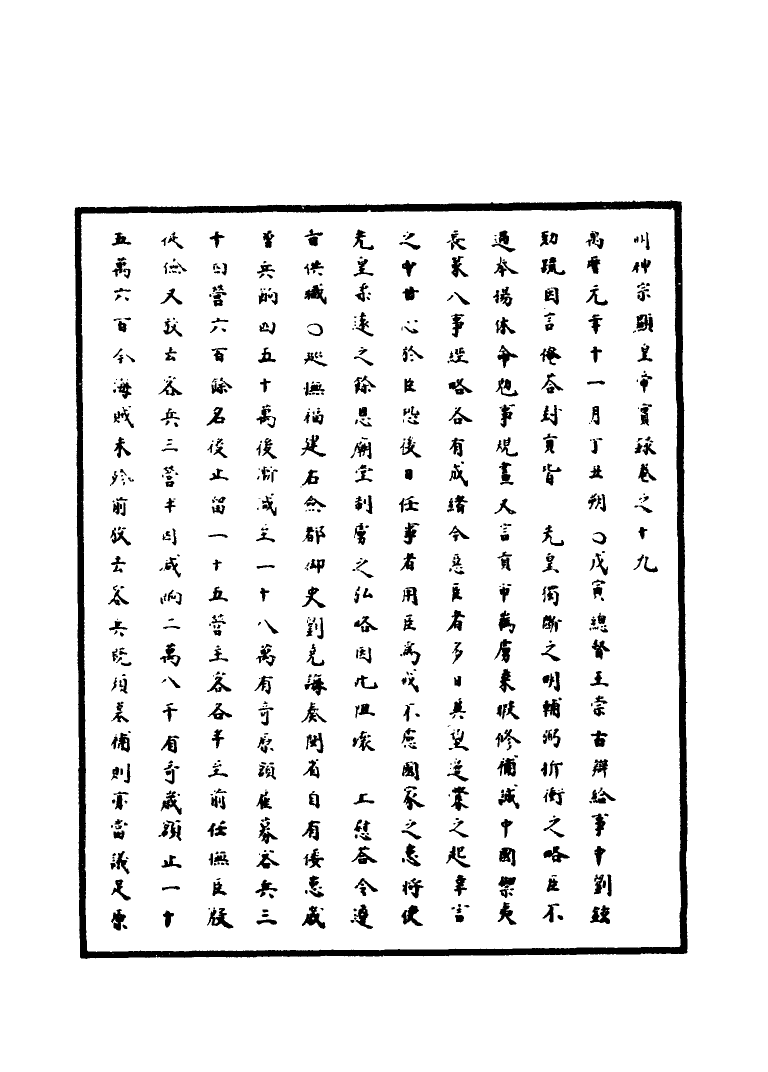 明神宗顯皇帝實錄卷之十九
萬曆元年十一月丁丑朔○戊寅總督王崇古辯給事中劉鉉
劾疏因言俺荅封貢皆　先皇獨斷之明輔弼折衝之略臣不
過奉揚休命勉事規畫又言貢市雋虜來駁修備誠中國禦夷
長策八事經略各有成緒今惡臣者多日異望邊釁之起幸言
之中甘心於臣恐後日任事者用臣為戒不慮國家之患將使
先皇柔遠之餘恩廟堂制虜之弘略因此阻壞　上慰荅令遵
旨供職○巡撫福建右僉都御史劉堯誨奏閩省自有倭患歲
增兵餉四五十萬後漸減至一十八萬有奇原額雇募客兵三
十四營六百餘名後止留一十五營主客各半至前任撫臣殷
從儉又放去客兵三營半因減餉二萬八千有奇歲額止一十
五萬六百今海賊未殄前放去客兵既須募補則亦當議足原